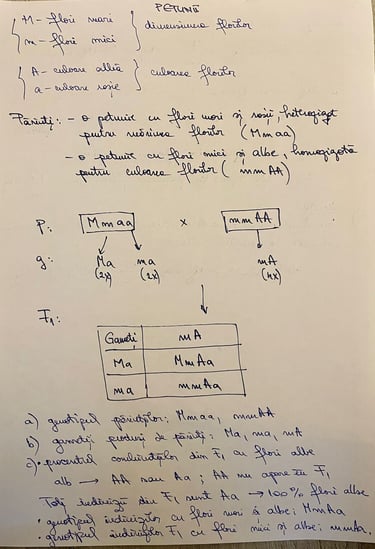 PETUNII
M - flori mari
m - flori mici
dimensiunea florilor
A - culoare albă
a - culoare roșie
culoarea florilor
Părinți: - o petunie cu flori mari și roșii, heterozigot
pentru mărimea florilor (Mmaa)
- o petunie cu flori mici și albe, homozigotă
pentru culoarea florilor (mmAA)
P: Mmaa x mmAA
g: Ma ma mA
(2x) (2x) (4x)
F1:
Gameți mA
Ma MmAa
ma mmAa
a) genotipul părinților: Mmaa, mmAA
b) gameții produși de părinți: Ma, ma, mA
c) • procentul combinațiilor din F1 cu flori albe
alb → AA sau Aa; AA nu apare în F1
Toți indivizii din F1 sunt Aa → 100% flori albe
• genotipul indivizilor cu flori mari și albe: MmAa
• genotipul indivizilor F1 cu flori mici și albe: mmAa.